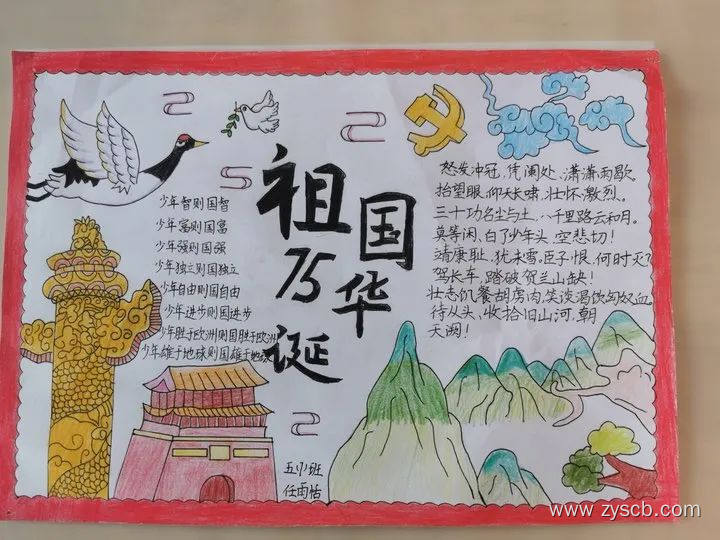 祖国
75华
诞
少年智则国智
少年富则国富
少年强则国强
少年独立则国独立
少年自由则国自由
少年进步则国进步
少年胜于欧洲则国胜于欧洲
少年雄于地球则国雄于地球
怒发冲冠,凭阑处、潇潇雨歇。
抬望眼,仰天长啸,壮怀激烈。
三十功名尘与土,八千里路云和月。
莫等闲,白了少年头,空悲切!
靖康耻,犹未雪。臣子恨,何时灭?
驾长车,踏破贺兰山缺!
壮志饥餐胡虏肉,笑谈渴饮匈奴血。
待从头、收拾旧山河,朝
天阙!
五(1)班
任雨
www.zyscb.com